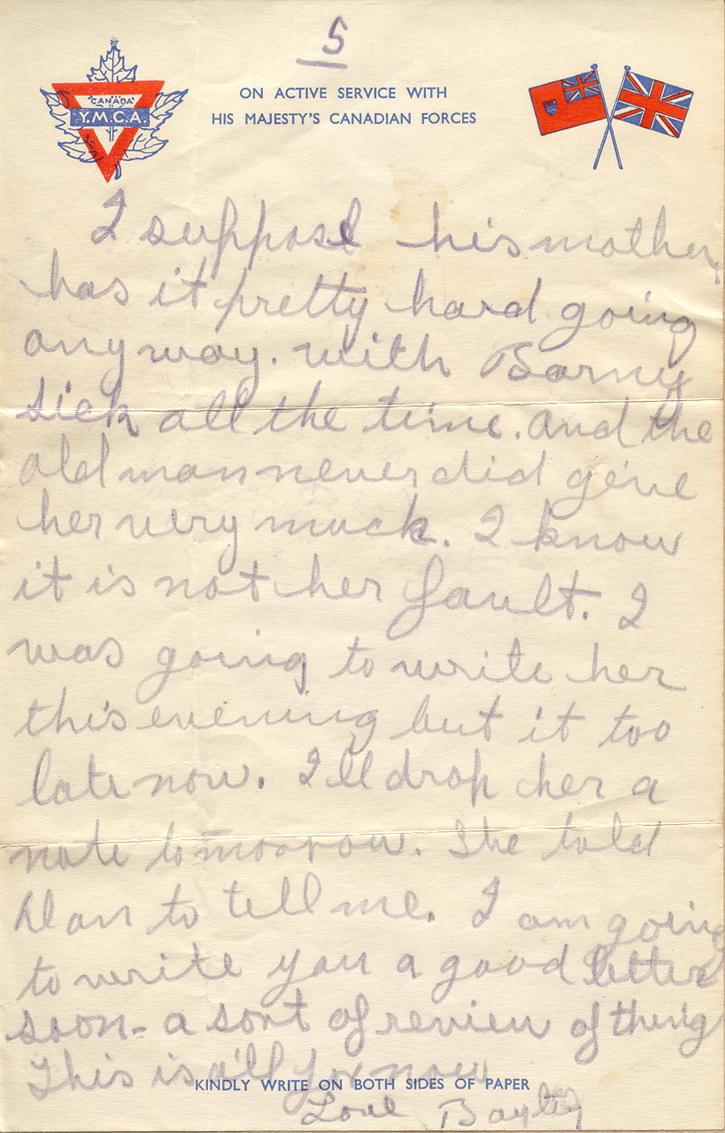 5
CANADA
Y.M.C.A.
ON ACTIVE SERVICE WITH
HIS MAJESTY'S CANADIAN FORCES
I suppose his mother
has it pretty hard going
anyway. with Barny
sick all the time. and the
old man never did give
her very much. I know
it is not her fault. I
was going to write her
this evening but it too
late now. I'll drop her a
note tomorrow. She told
Alan to tell me. I am going
to write you a good letter
soon - a sort of review of thing
This is all for now
KINDLY WRITE ON BOTH SIDES OF PAPER
Love Bayley